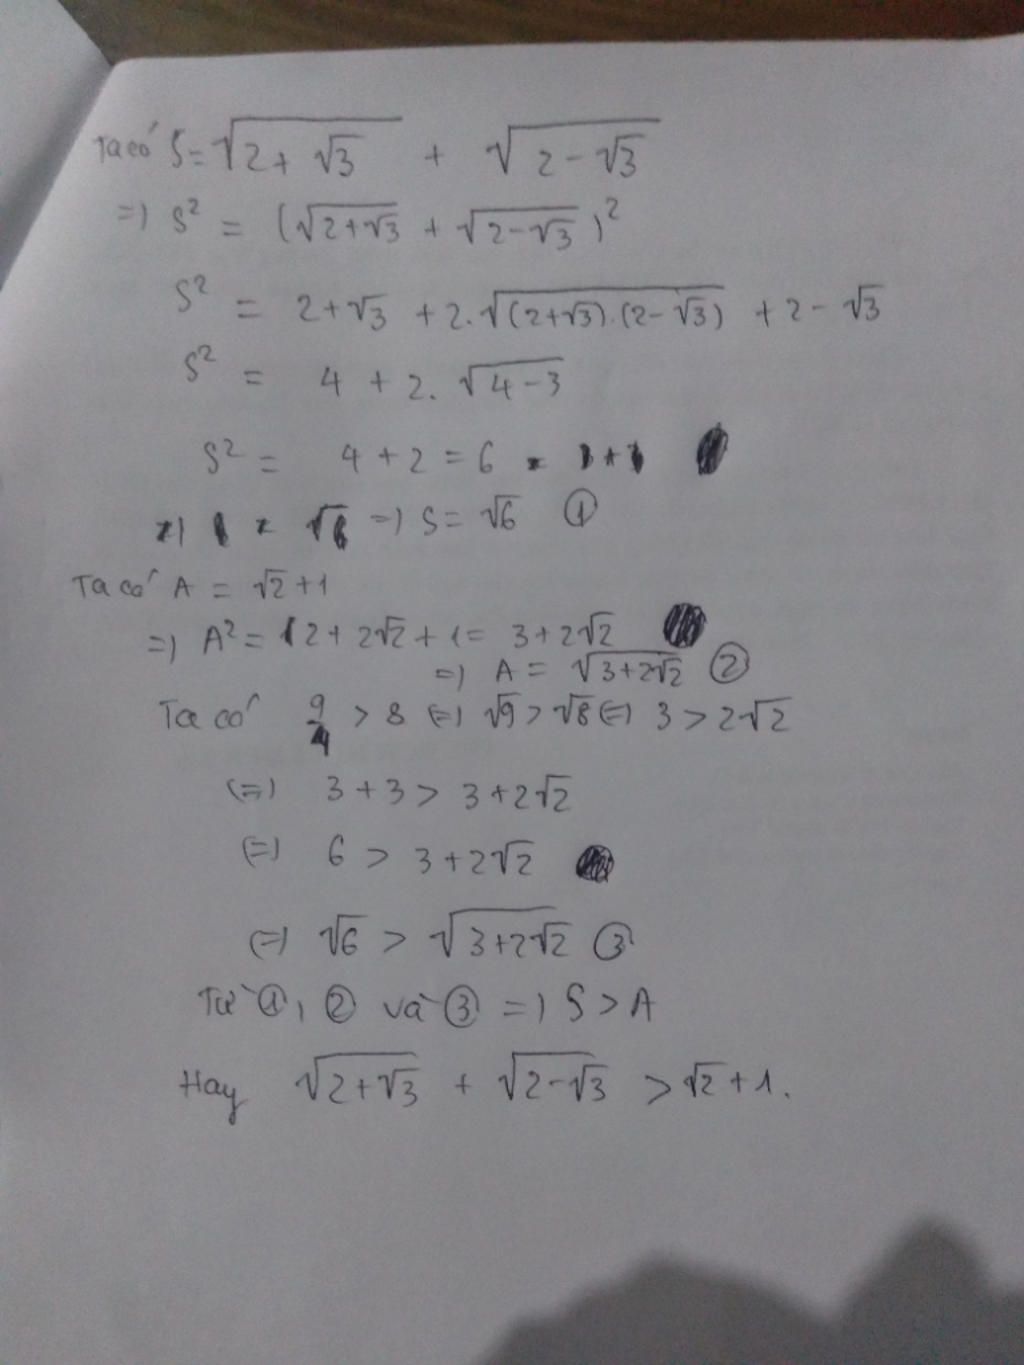 Ta có S = √(2 + √3) + √(2 - √3)
=) S² = (√(2+√3) + √(2-√3))²
S² = 2+√3 + 2.√((2+√3).(2-√3)) + 2 - √3
S² = 4 + 2. √(4-3)
S² = 4 + 2 = 6
=) S = √6 ①
Ta có A = √2 + 1
=) A² = 2 + 2√2 + 1 = 3 + 2√2
=) A = √(3+2√2) ②
Ta có 9 > 8 (=) √9 > √8 (=) 3 > 2√2
(=) 3 + 3 > 3 + 2√2
(=) 6 > 3 + 2√2
(=) √6 > √(3+2√2) ③
Từ ①, ② và ③ =) S > A
Hay √(2+√3) + √(2-√3) > √2 + 1.